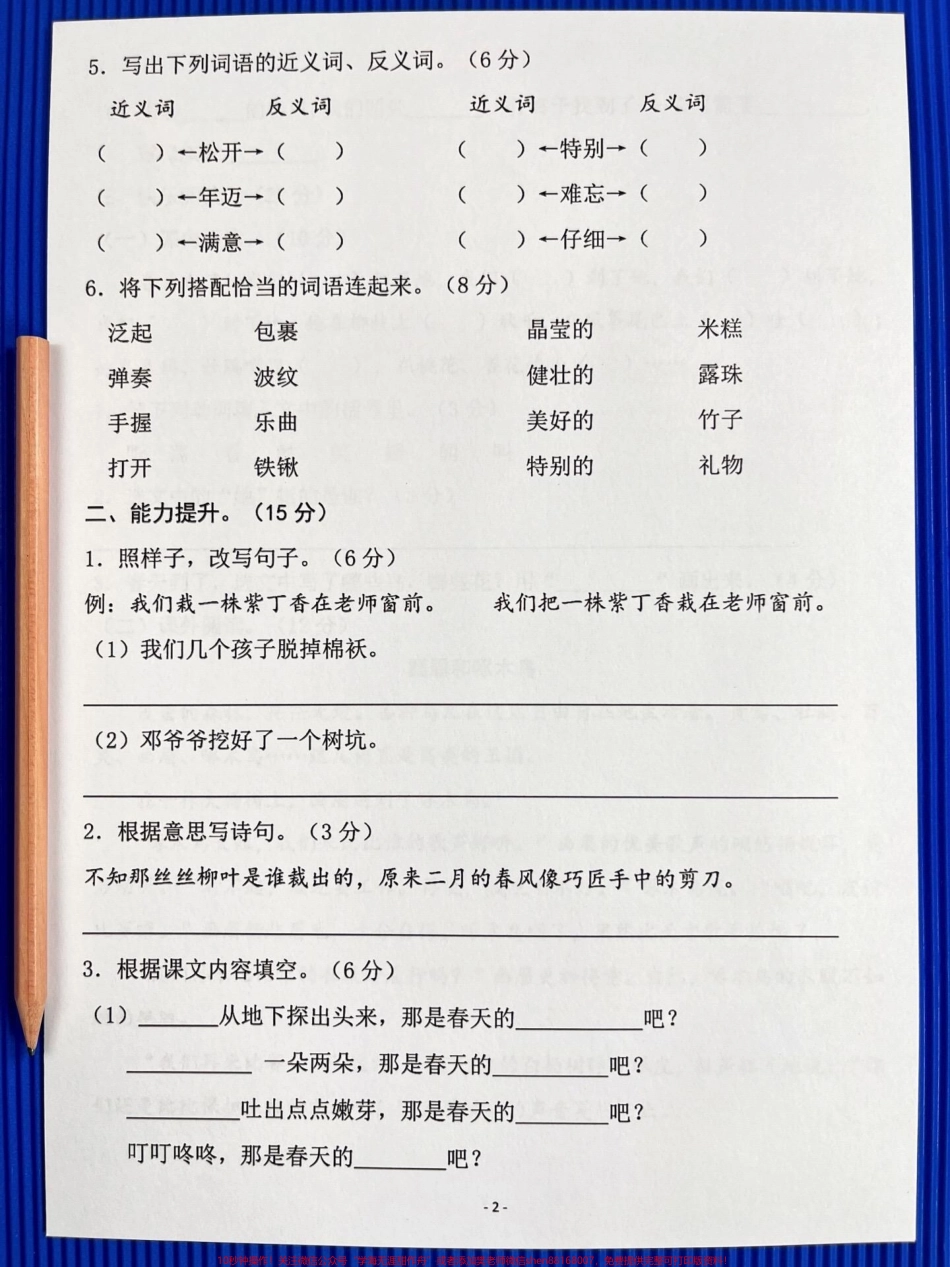 5. 写出下列词语的近义词、反义词。（6 分）
近义词 反义词 近义词 反义词
（ ）←松开→（ ） （ ）←特别→（ ）
（ ）←年迈→（ ） （ ）←难忘→（ ）
（ ）←满意→（ ） （ ）←仔细→（ ）
6. 将下列搭配恰当的词语连起来。（8 分）
泛起 包裹 晶莹的 米糕
弹奏 波纹 健壮的 露珠
手握 乐曲 美好的 竹子
打开 铁锹 特别的 礼物
二、能力提升。（15 分）
1. 照样子，改写句子。（6 分）
例：我们栽一株紫丁香在老师窗前。 我们把一株紫丁香栽在老师窗前。
（1）我们几个孩子脱掉棉袄。
（2）邓爷爷挖好了一个树坑。
2. 根据意思写诗句。（3 分）
不知那丝丝柳叶是谁裁出的，原来二月的春风像巧匠手中的剪刀。
3. 根据课文内容填空。（6 分）
（1）_______从地下探出头来，那是春天的___________吧？
___________一朵两朵，那是春天的__________吧？
__________吐出点点嫩芽，那是春天的________吧？
叮叮咚咚，那是春天的________吧？
- 2 -